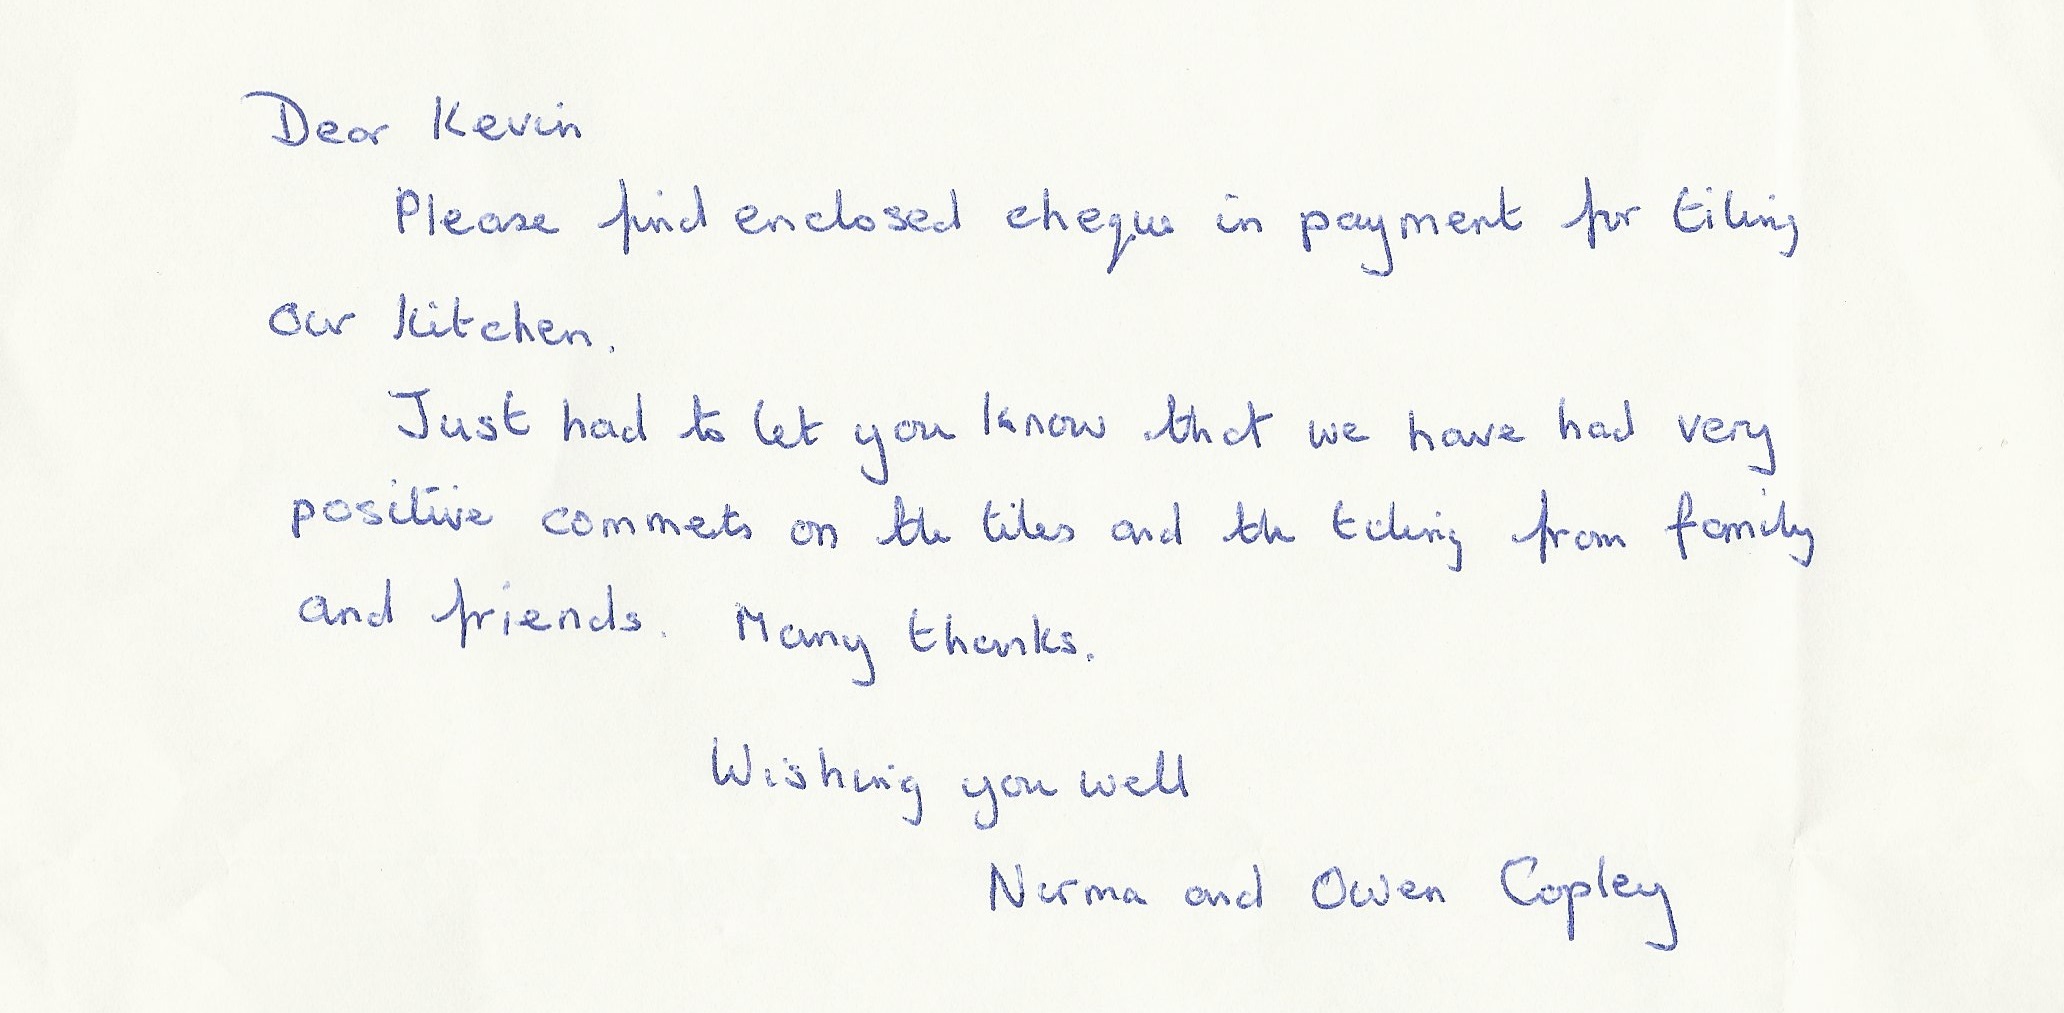 Dear Kevin
Please find enclosed cheque in payment for tiling
our kitchen.
Just had to let you know that we have had very
positive commets on the tiles and the tiling from family
and friends. Many thanks.
Wishing you well
Norma and Owen Copley